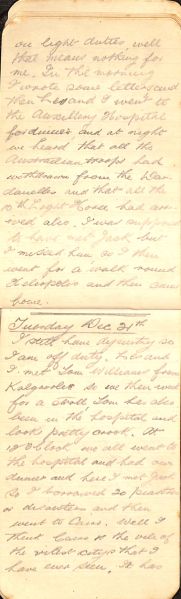 on light duties, well
that means nothing for
me. In the morning
I wrote some letters and
then and I went to
the Auxillery Hospital
for dinner and at night
we heard that all the
Australian troops had
withdrawn from the Dar-
danelles and that all the
10th Light Horse had arr-
ived also. I was supposed
to have met Jack but
I missed him so I then
went for a walk round
Heliopolis and then came
home.
Tuesday Dec 21st
I still have dysentry so
I am off duty. and
I met Tom Williams from
Kalgoorlie so we then went
for a stroll Tom has also
been in the hospital and
look pretty crook. At
12 O'Clock we all went to
the hospital and had our
dinner and here I met Jack
So I borrowed 20 piastres
or disasters and then
went to Cairo. Well I
think Cairo is the vile of
the vilest citys that I
have ever seen. It has